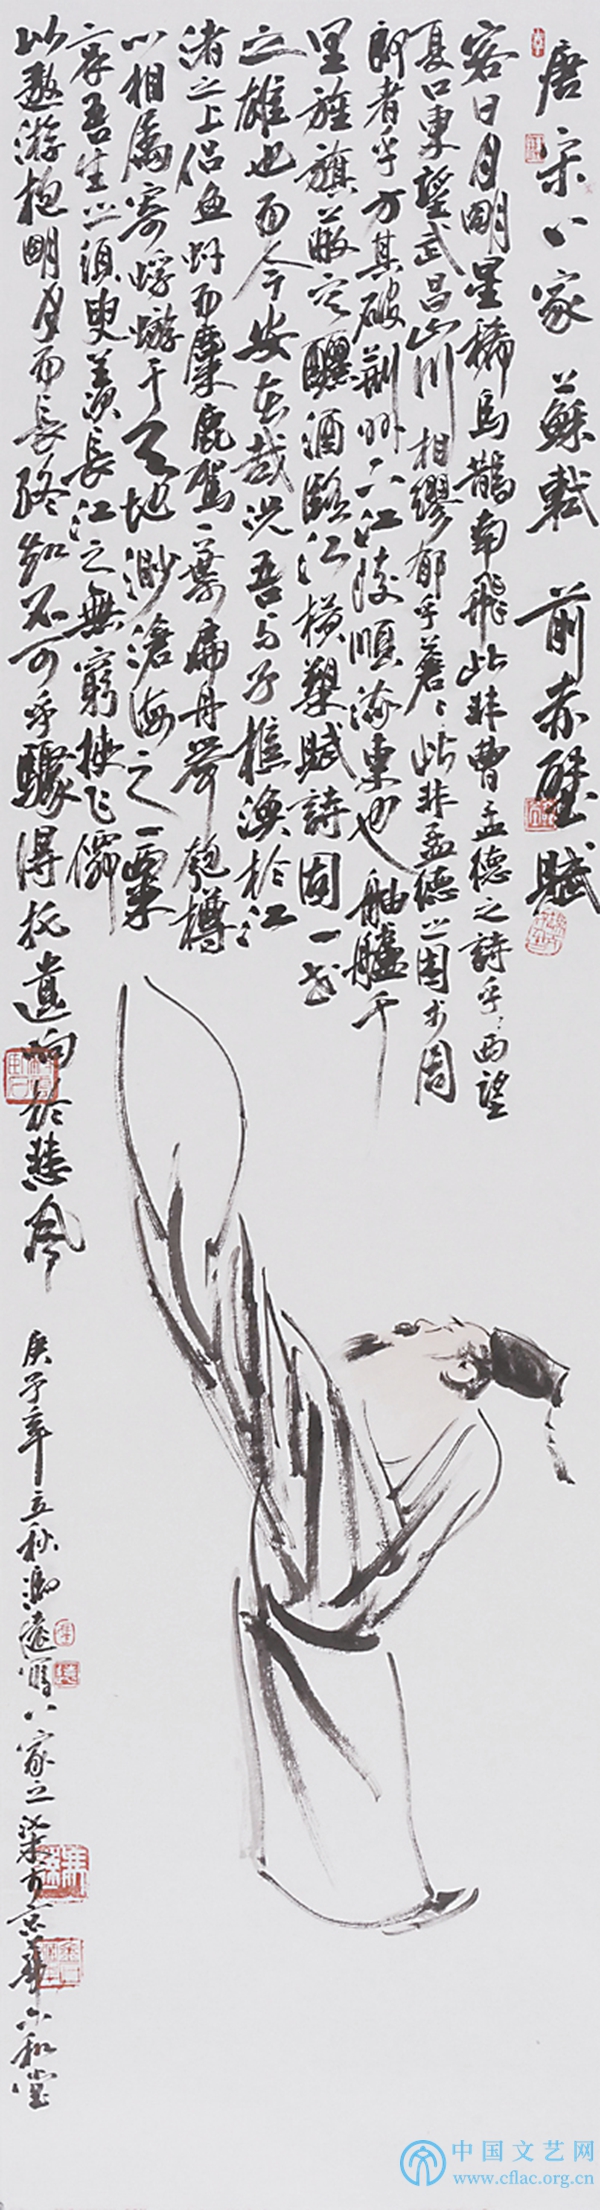 唐宋八家 蘇軾 前赤壁賦
客曰月明星稀烏鵲南飛此非曹孟德之詩乎西望
夏口東望武昌山川相繆郁乎蒼々此非孟德之困於周
郎者乎方其破荊州下江陵順流東也舳艫千
里旌旗蔽空釃酒臨江橫槊賦詩固一世
之雄也而今安在哉況吾與子樵漁於江
渚之上侶魚蝦而麋鹿駕一葉扁舟舉匏樽
以相屬寄蜉蝣于天地渺滄海之一粟
哀吾生之須臾羨長江之無窮挾飛僊
以遨游抱明月而長終知不可乎驟得托遺响於悲風
庚子年立秋馮遠寫八家之柒於京華六和堂
中国文艺网
www.cflac.org.cn